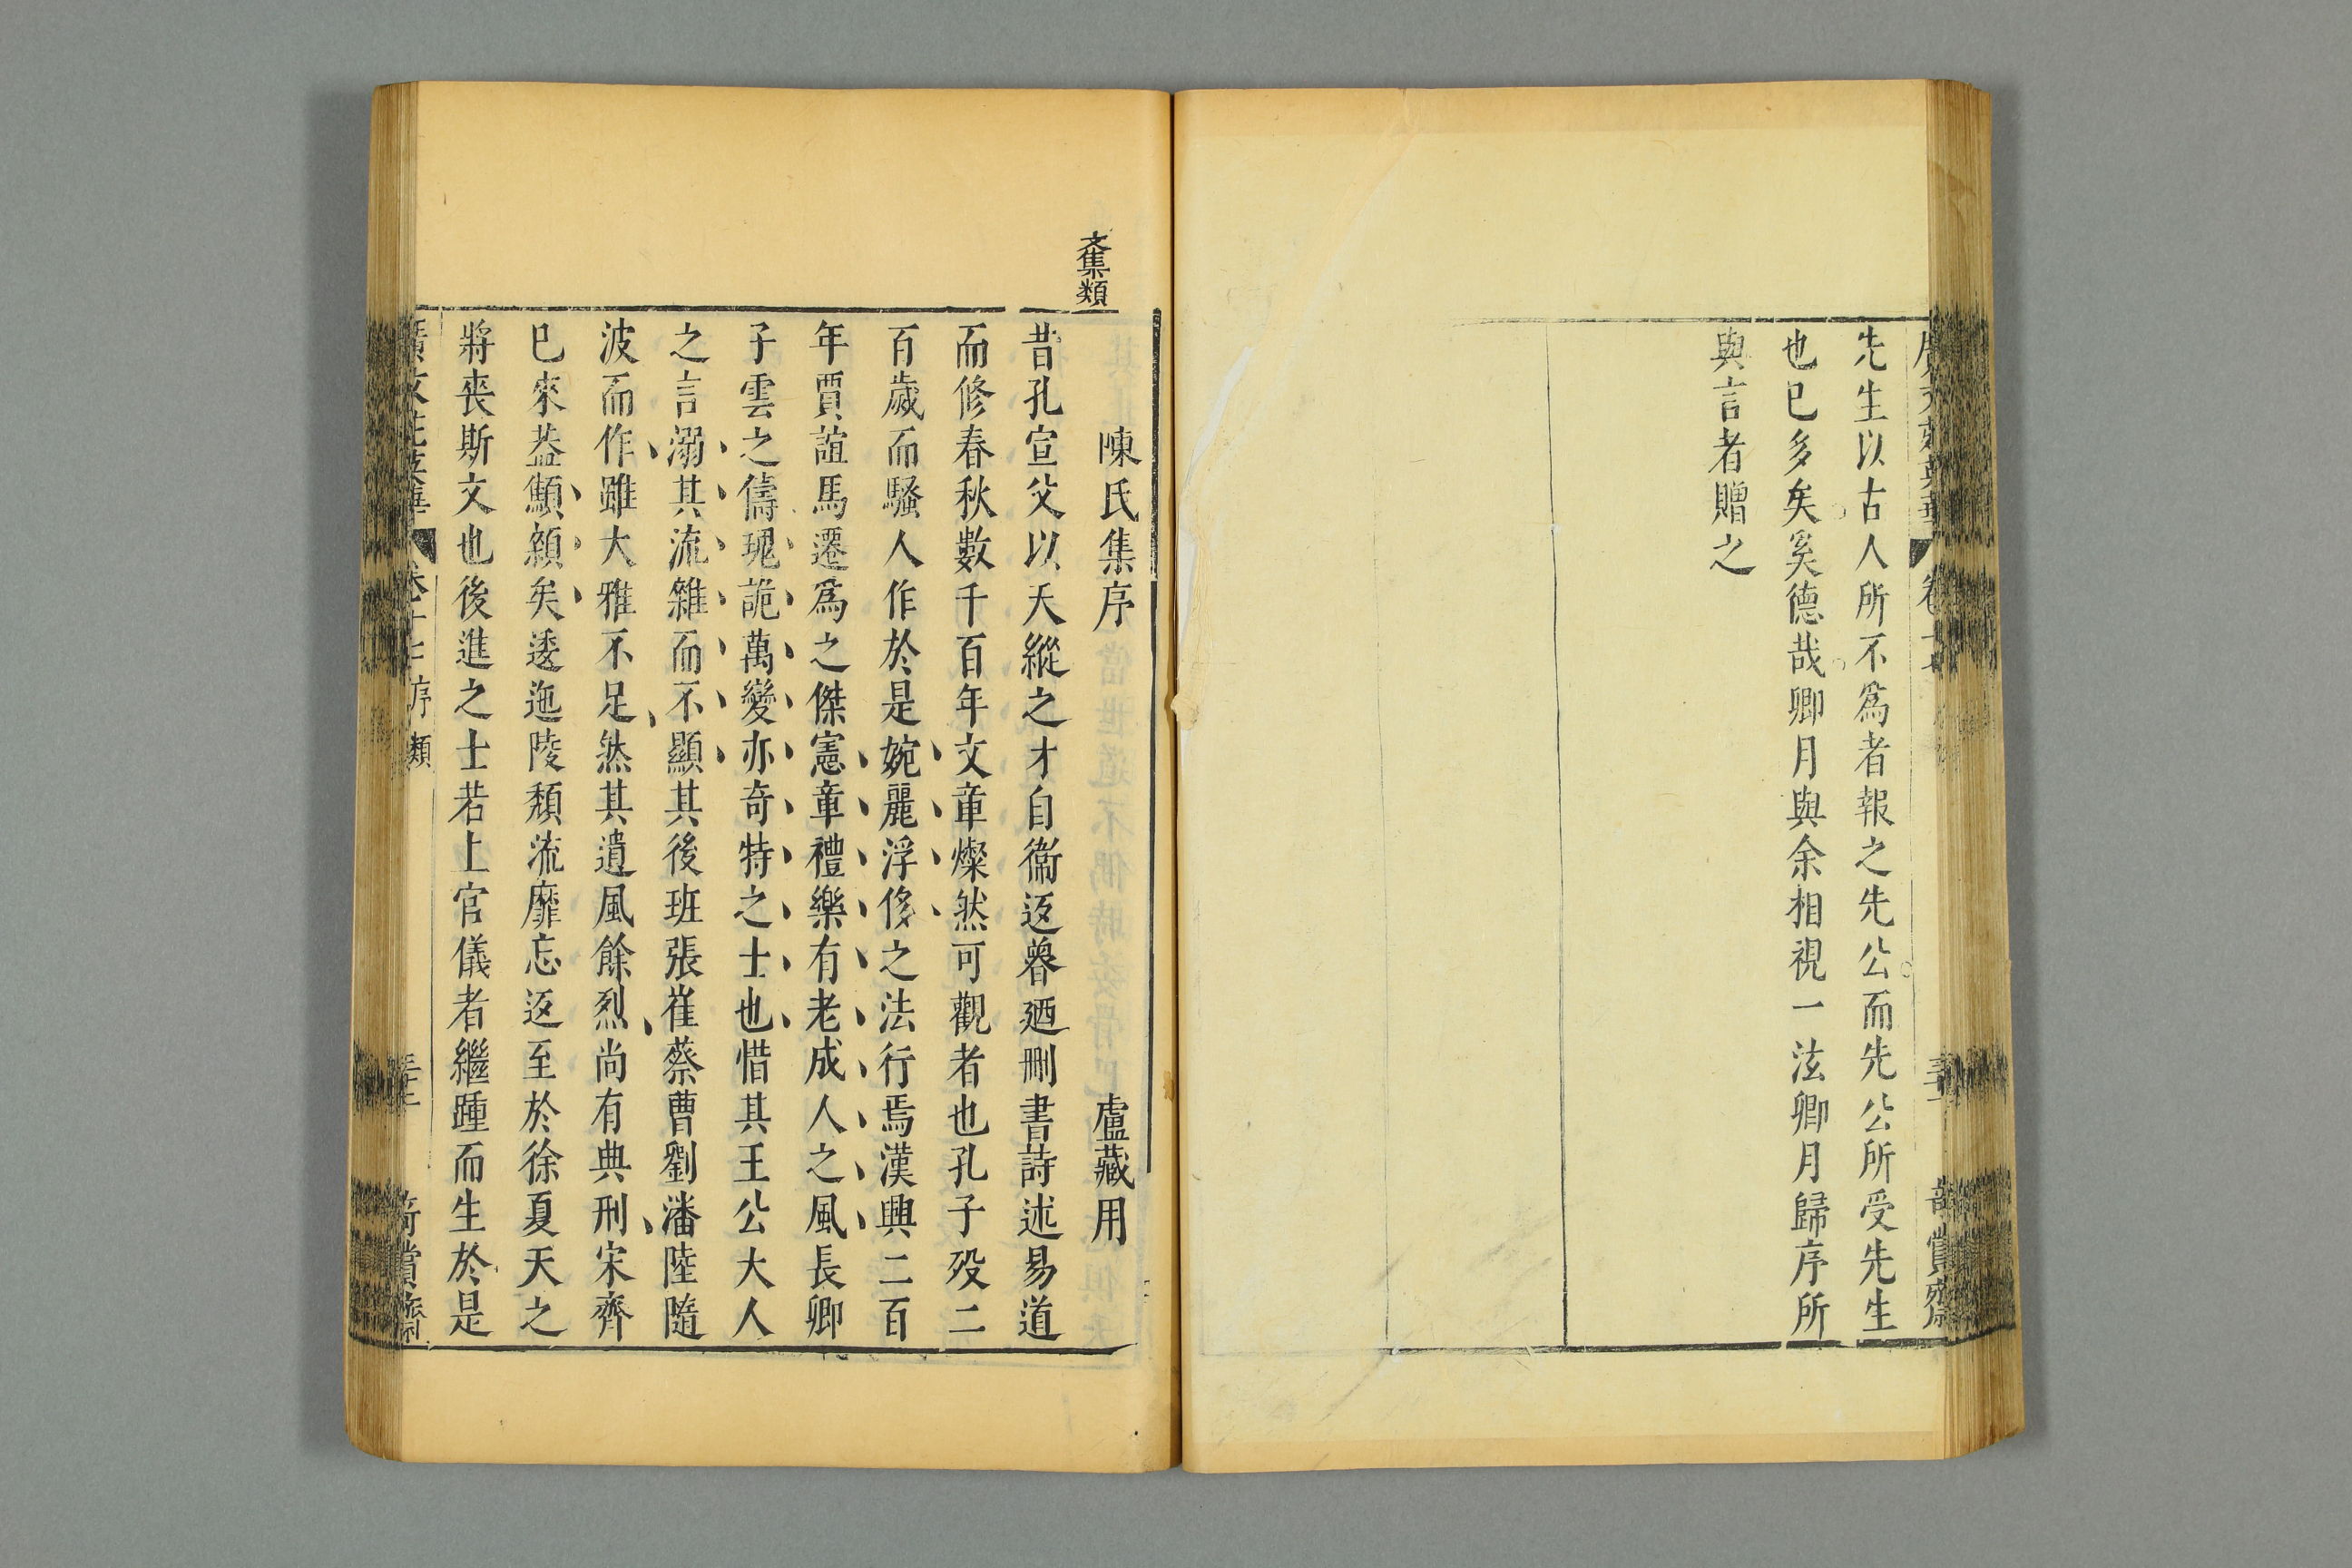 先生以古人所不爲者報之先公而先公所受先生
也已多矣奚德哉卿月與余相視一泫卿月歸序所
與言者贈之
文集類
陳氏集序 盧藏用
昔孔宣父以天縱之才自衞返魯廼刪書詩述易道
而修春秋數千百年文章燦然可觀者也孔子歿二
百歲而騷人作於是婉麗浮侈之法行焉漢興二百
年賈誼馬遷爲之傑憲章禮樂有老成人之風長卿
子雲之儔瑰詭萬變亦奇特之士也惜其王公大人
之言溺其流雜而不顯其後班張崔蔡曹劉潘陸隨
波而作雖大雅不足然其遺風餘烈尚有典刑宋齊
已來葢顦顇矣逶迤陵頽流靡忘返至於徐夏天之
將喪斯文也後進之士若上官儀者繼踵而生於是
廣文苑英華 卷十七 序類